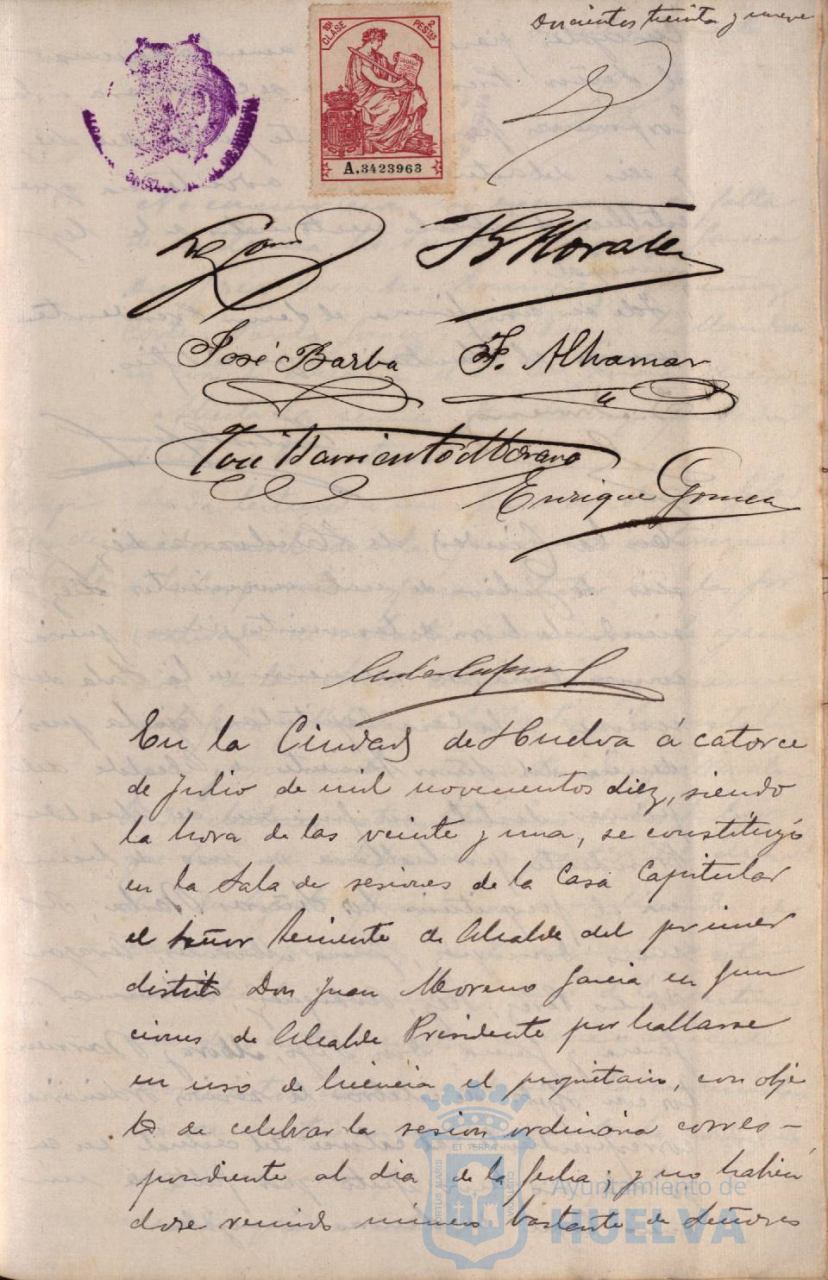 Doscientos treinta y nueve
10ª CLASE 2 PESTAS
A.3423963
José Barba F. Alhamar
José Barriento Moreno
Enrique Gomez
En la Ciudad de Huelva á catorce
de Julio de mil novecientos diez, siendo
la hora de las veinte y una, se constituyó
en la Sala de sesiones de la Casa Capitular
el Señor Teniente de Alcalde del primer
distrito Don Juan Moreno Garcia en fun
ciones de Alcalde Presidente por hallarse
en uso de licencia el propietario, con obje
to de celebrar la sesion ordinaria corres-
pondiente al dia de la fecha; y no habien
dose reunido número bastante de Señores
Ayuntamiento de
HUELVA